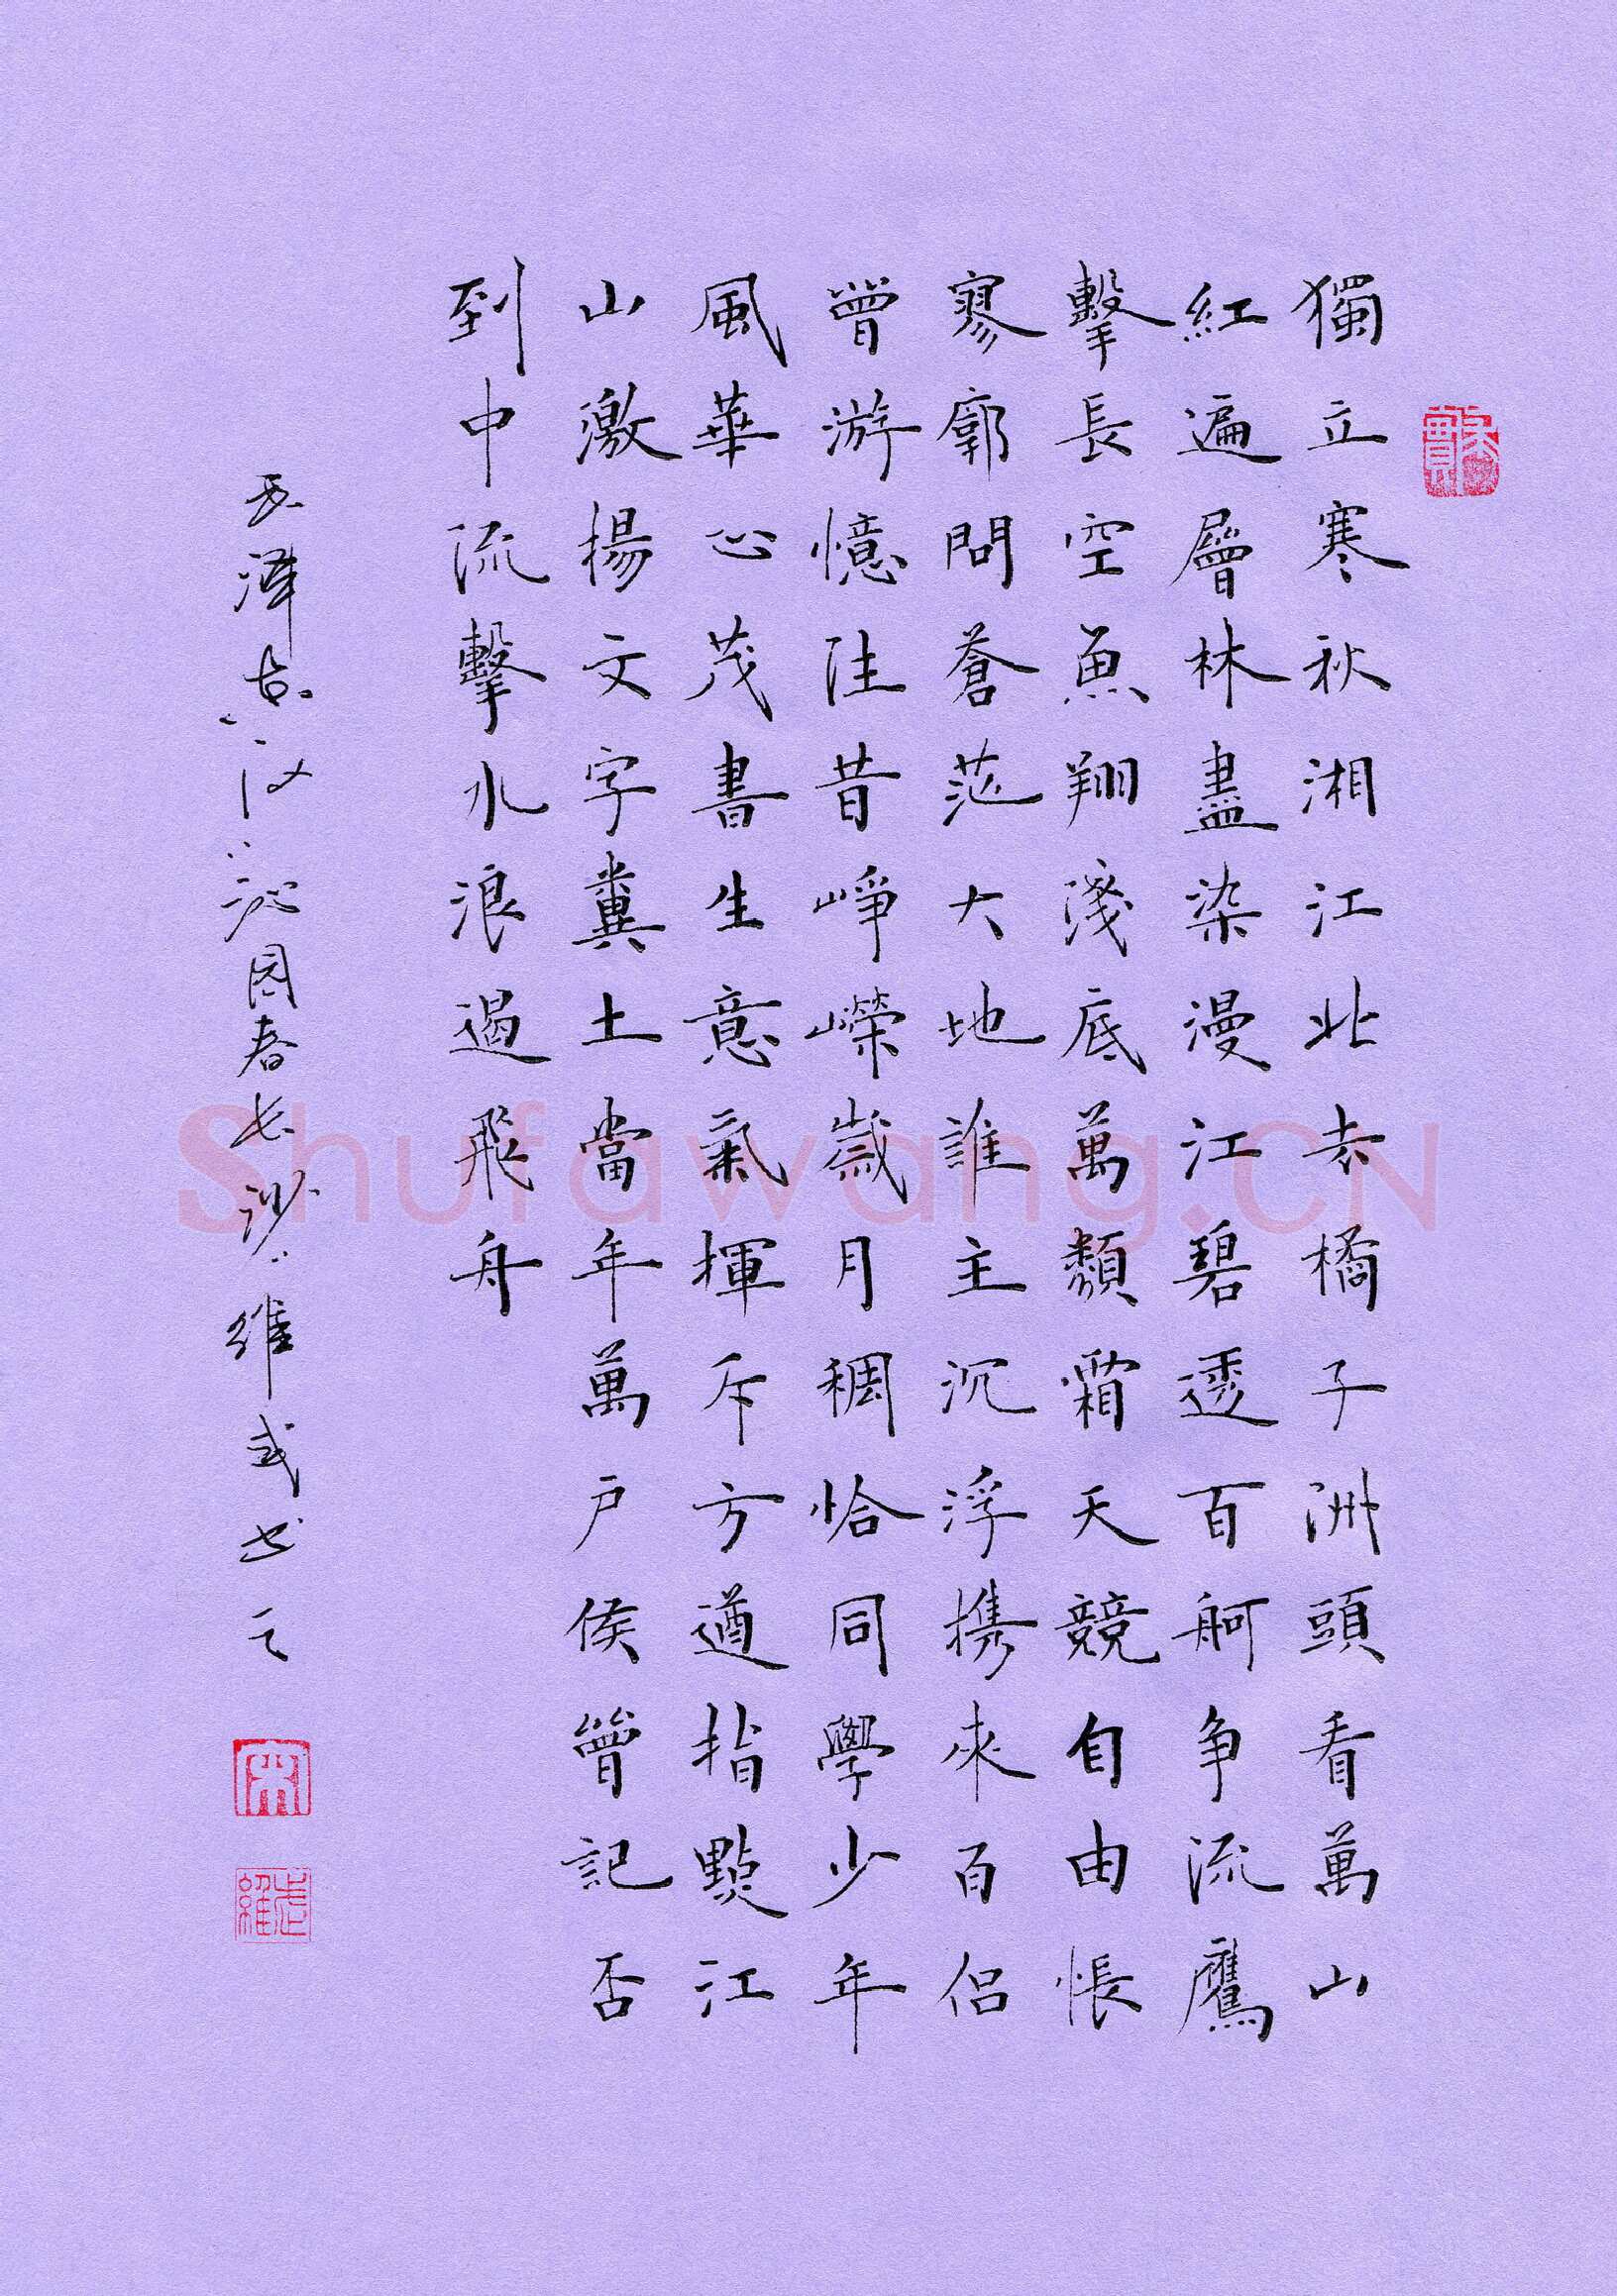 獨立寒秋湘江北去橘子洲頭看萬山
紅遍層林盡染漫江碧透百舸争流鷹
擊長空魚翔淺底萬類霜天競自由悵
寥廓問蒼茫大地誰主沉浮携來百侣
曾游憶往昔崢嶸歲月稠恰同學少年
風華正茂書生意氣揮斥方遒指點江
山激揚文字糞土當年萬户侯曾記否
到中流擊水浪遏飛舟
毛澤东词沁园春长沙維武书之
宋
Shufawang.CN